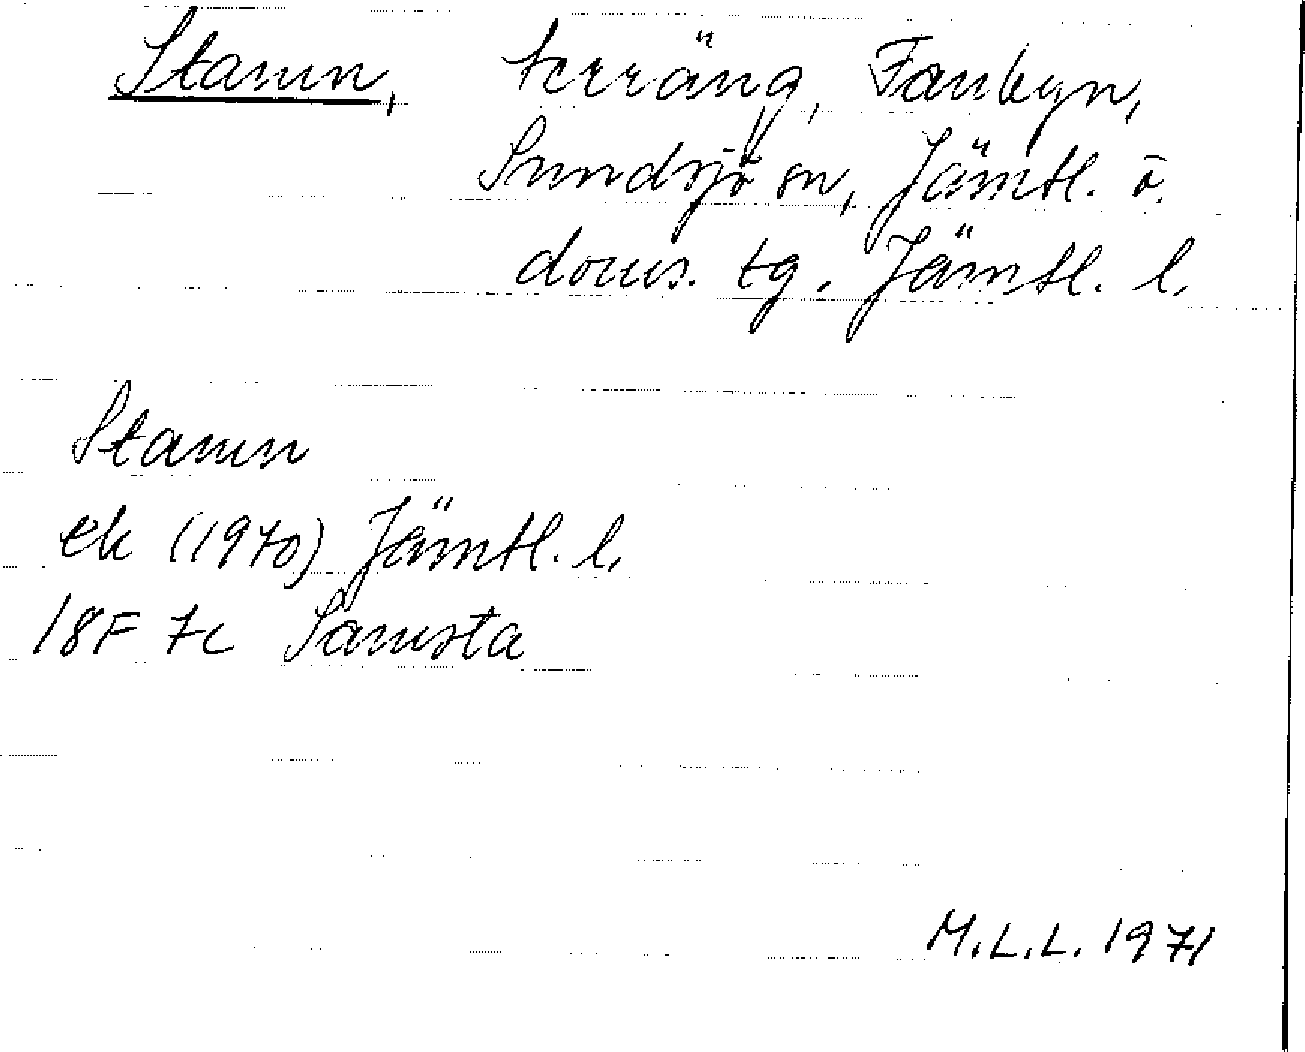 Stamn, terräng, Fanbyn,
Sundsjö sn, Jämtl. ö.
doms. tg. Jämtl. l.
Stamn
ek (1970) Jämtl. l.
18F 7c Samsta
M.L.L. 1971